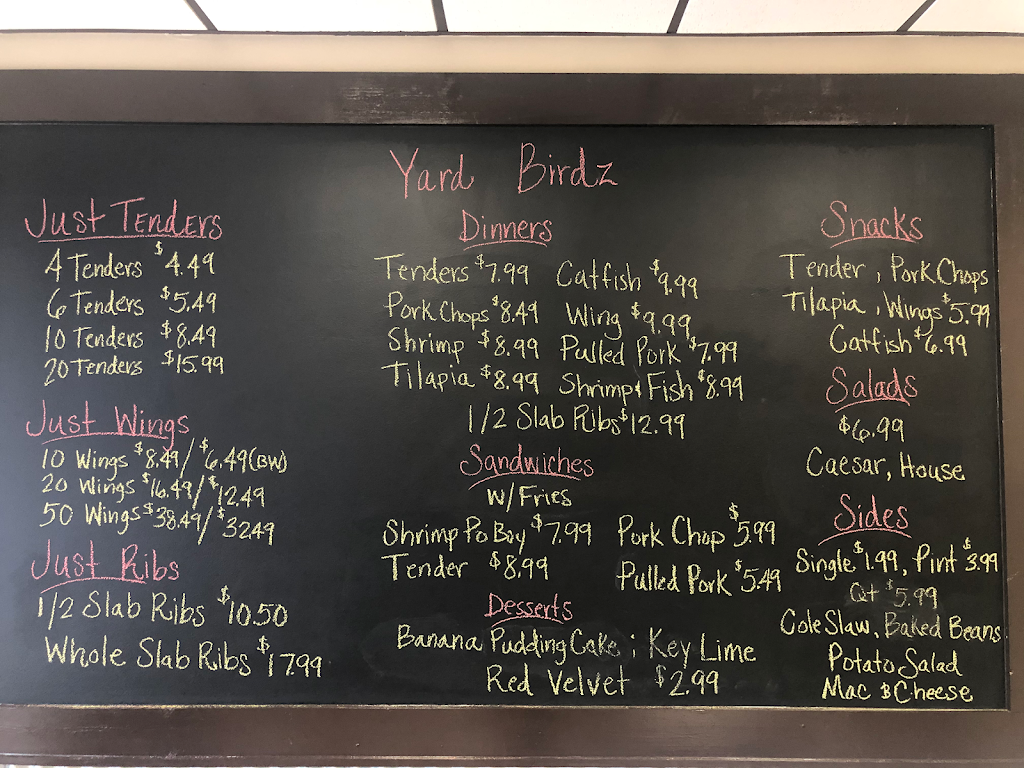 Yard Birdz
Just Tenders
4 Tenders $4.49
6 Tenders $5.49
10 Tenders $8.49
20 Tenders $15.99
Just Wings
10 Wings $8.49/$6.49(BW)
20 Wings $16.49/$12.49
50 Wings $38.49/$32.49
Just Ribs
1/2 Slab Ribs $10.50
Whole Slab Ribs $17.99
Dinners
Tenders $7.99 Catfish $9.99
Pork Chops $8.49 Wing $9.99
Shrimp $8.99 Pulled Pork $7.99
Tilapia $8.99 Shrimp & Fish $8.99
1/2 Slab Ribs $12.99
Sandwiches
W/Fries
Shrimp Po Boy $7.99 Pork Chop $5.99
Tender $8.99 Pulled Pork $5.49
Desserts
Banana Pudding Cake ; Key Lime
Red Velvet $2.99
Snacks
Tender, Pork Chops
Tilapia, Wings $5.99
Catfish $6.99
Salads
$6.99
Caesar, House
Sides
Single $1.99, Pint $3.99
Qt $5.99
Cole Slaw, Baked Beans
Potato Salad
Mac & Cheese